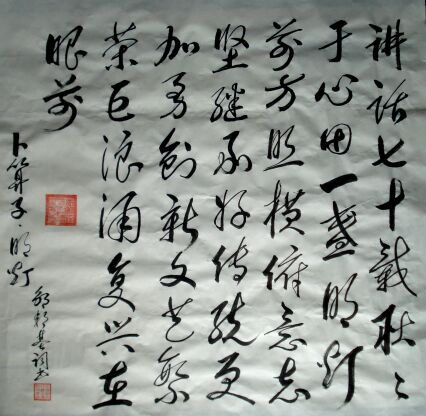 讲话七十载耿々
于心田一盏明灯
前方照横俯意志
坚继承好传统更
加勇创新文艺繁
荣巨浪涌复兴在
眼前
卜算子·明灯